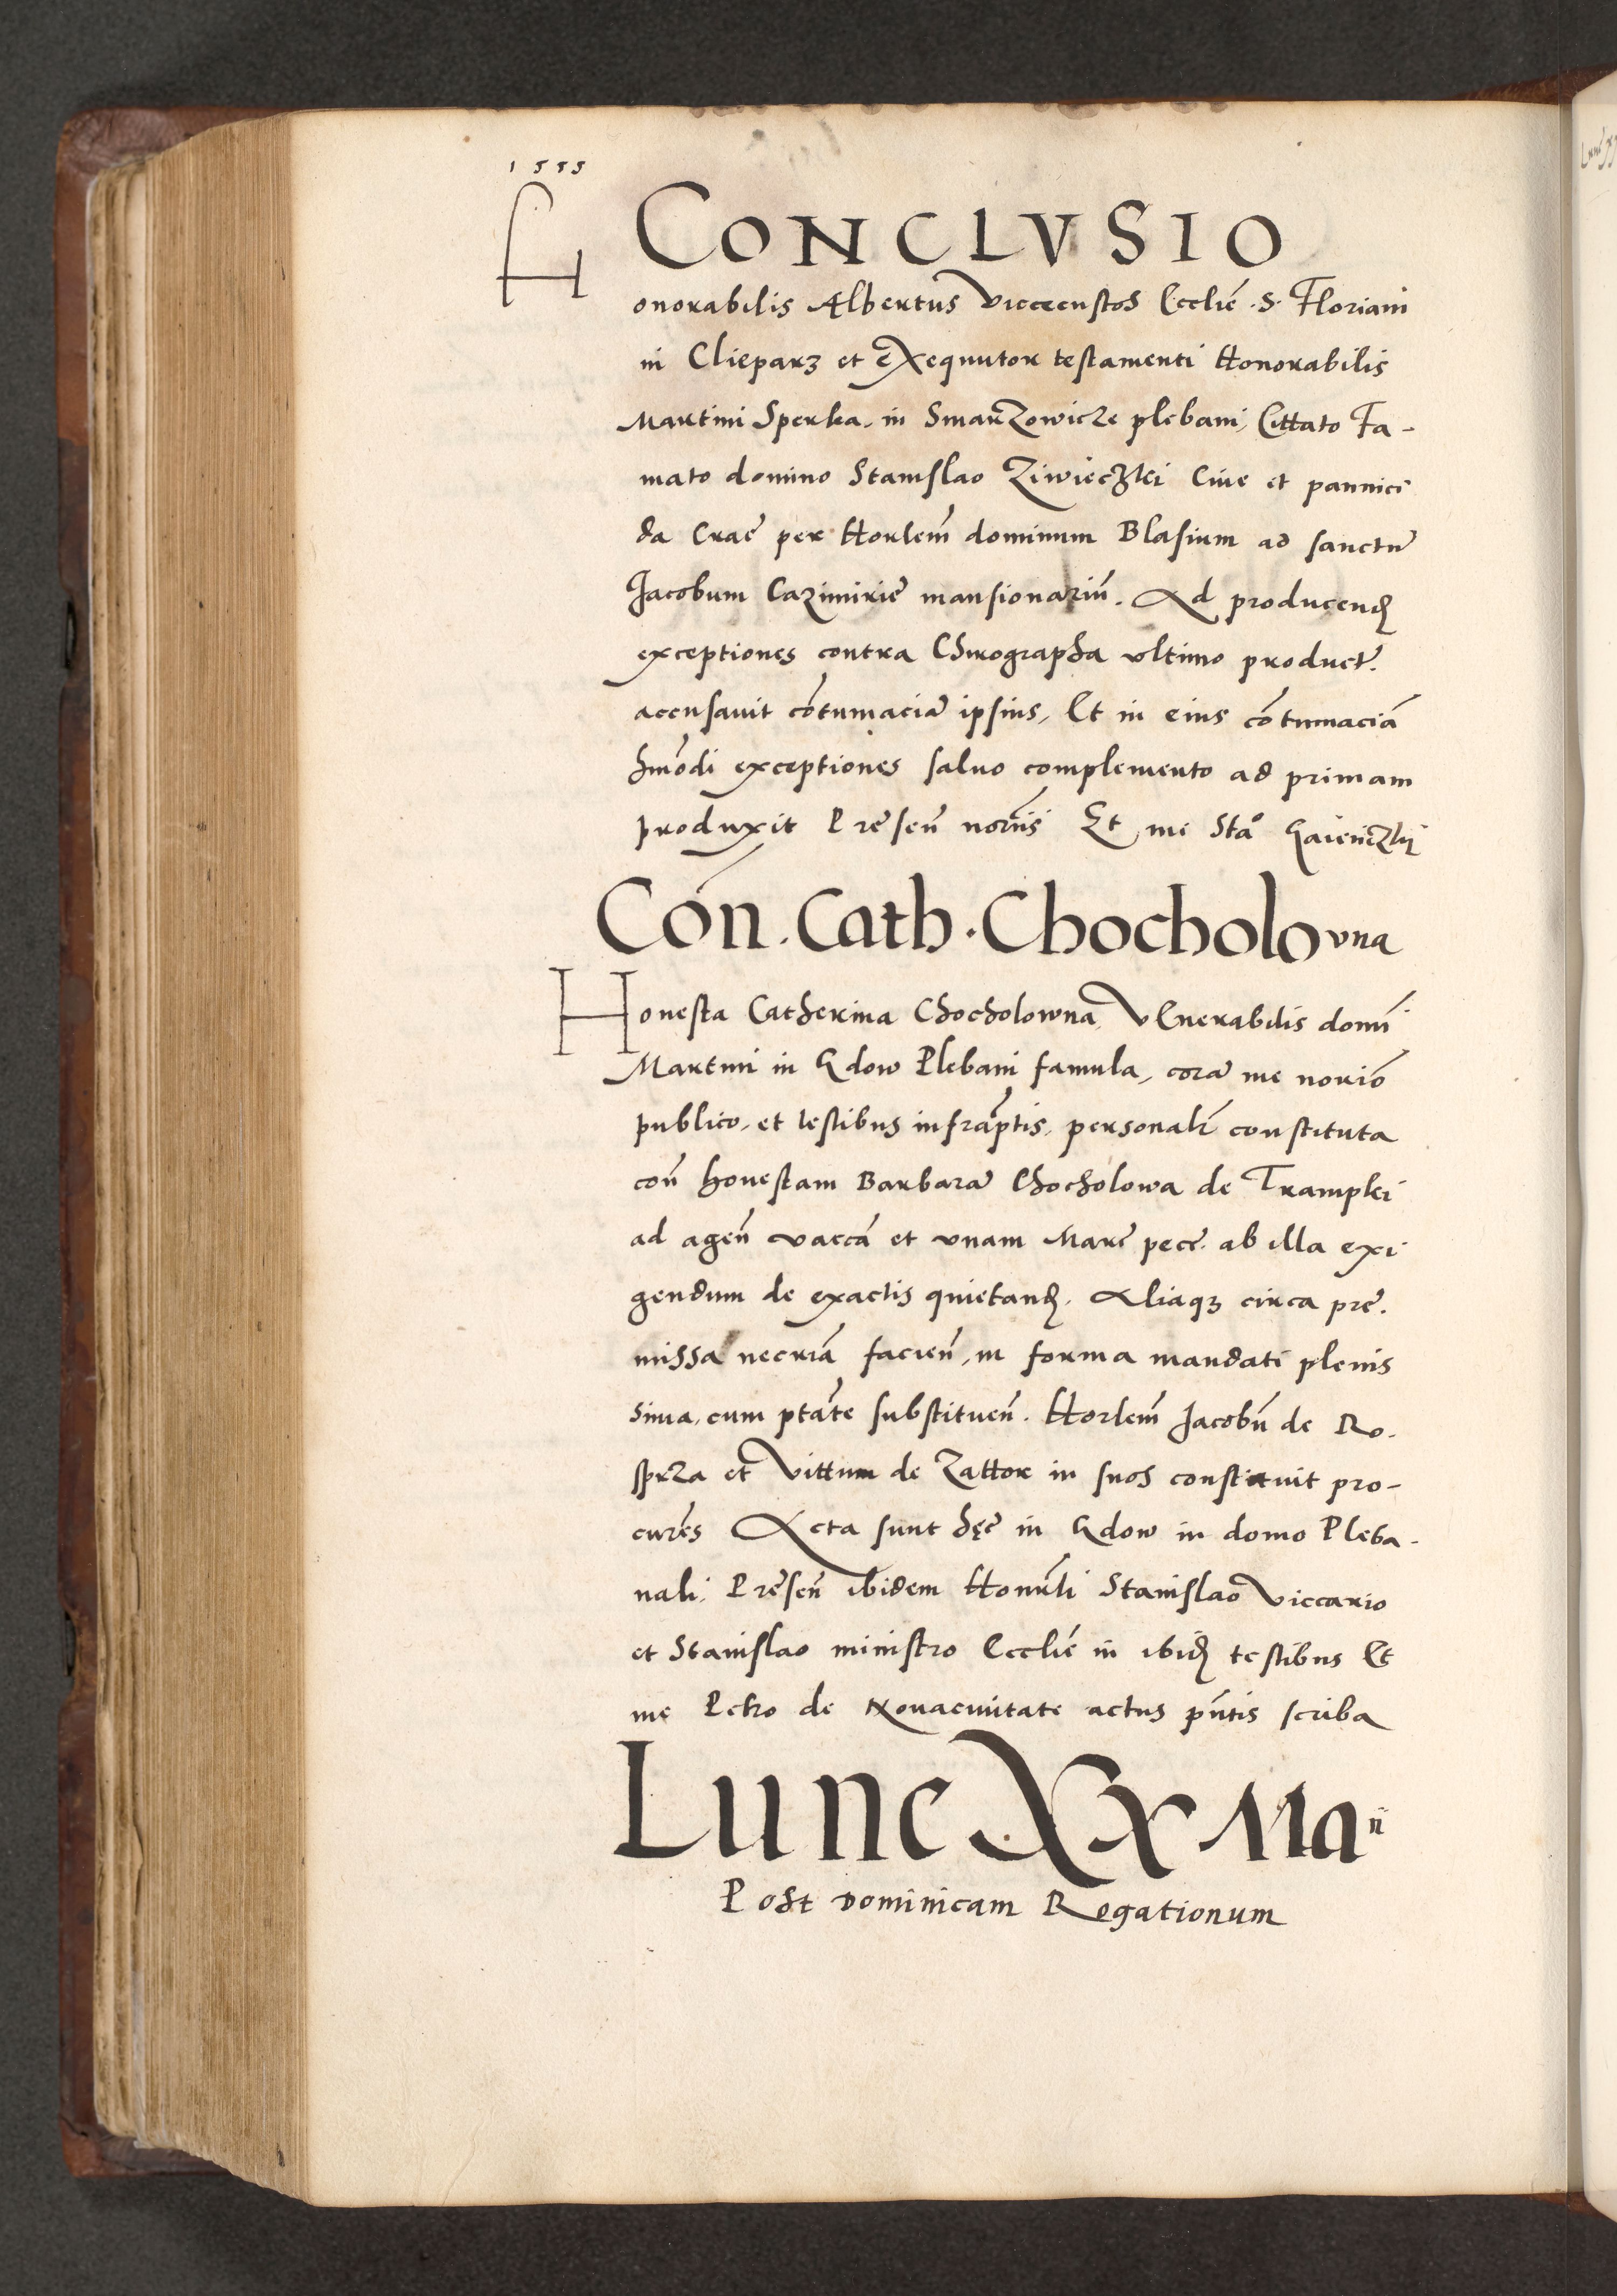 1555
CONCLVSIO
Honorabilis Albertus Vicecustos Eccliē .S. Floriani
in Clieparz et exequutor testamenti Honorabilis
Martini Sperka, in Smarzowicze plebani, Cittato Fa-
mato domino Stanislao Ziwieczkei Cive et pannici
da Crac̄ per Horlem̄ dominum Blasium ad sanctū
Jacobum Cazimirie mansionariū. Ad producend
exceptiones contra Chirographa ultimo product.
accusavit cōtumaciā ipsius, Et in eius cōtumaciā
hm̄odi exceptiones salvo complemento ad primam
produxit Pres̄en norīis Et me Stāo
Cōn. Cath. Chocholovna
Honesta Catherina Chocholowna, Venerabilis domī
Martini in Gdow Plebani famula, corā me noriō
publico, et testibus infrāptis, personalr̄ constituta
con̄ honestam Barbarā Chocholowa de Tramplei
ad agen̄ vaccā et unam Marc̄ pecc̄. ab illa exi
gendum de exactis quietand, Aliaqꝫ circa pre.
missa necriā facien̄, in forma mandati plenis
sima, cum ptāte substituen̄. Horlem̄ Jacobū de Ro.
sprza et Vittum de Zattor in suos constituit pro-
curēs Acta sunt hęc in Gdow in domo Pleba-
nali, Pres̄en ibidem Honrli Stanislao Viccario
et Stanislao ministro Eccliē in ibid testibus Et
me Petro de Novacivitate actus pn̄tis scriba
Lune XX Maii
Post Dominicam Rogationum